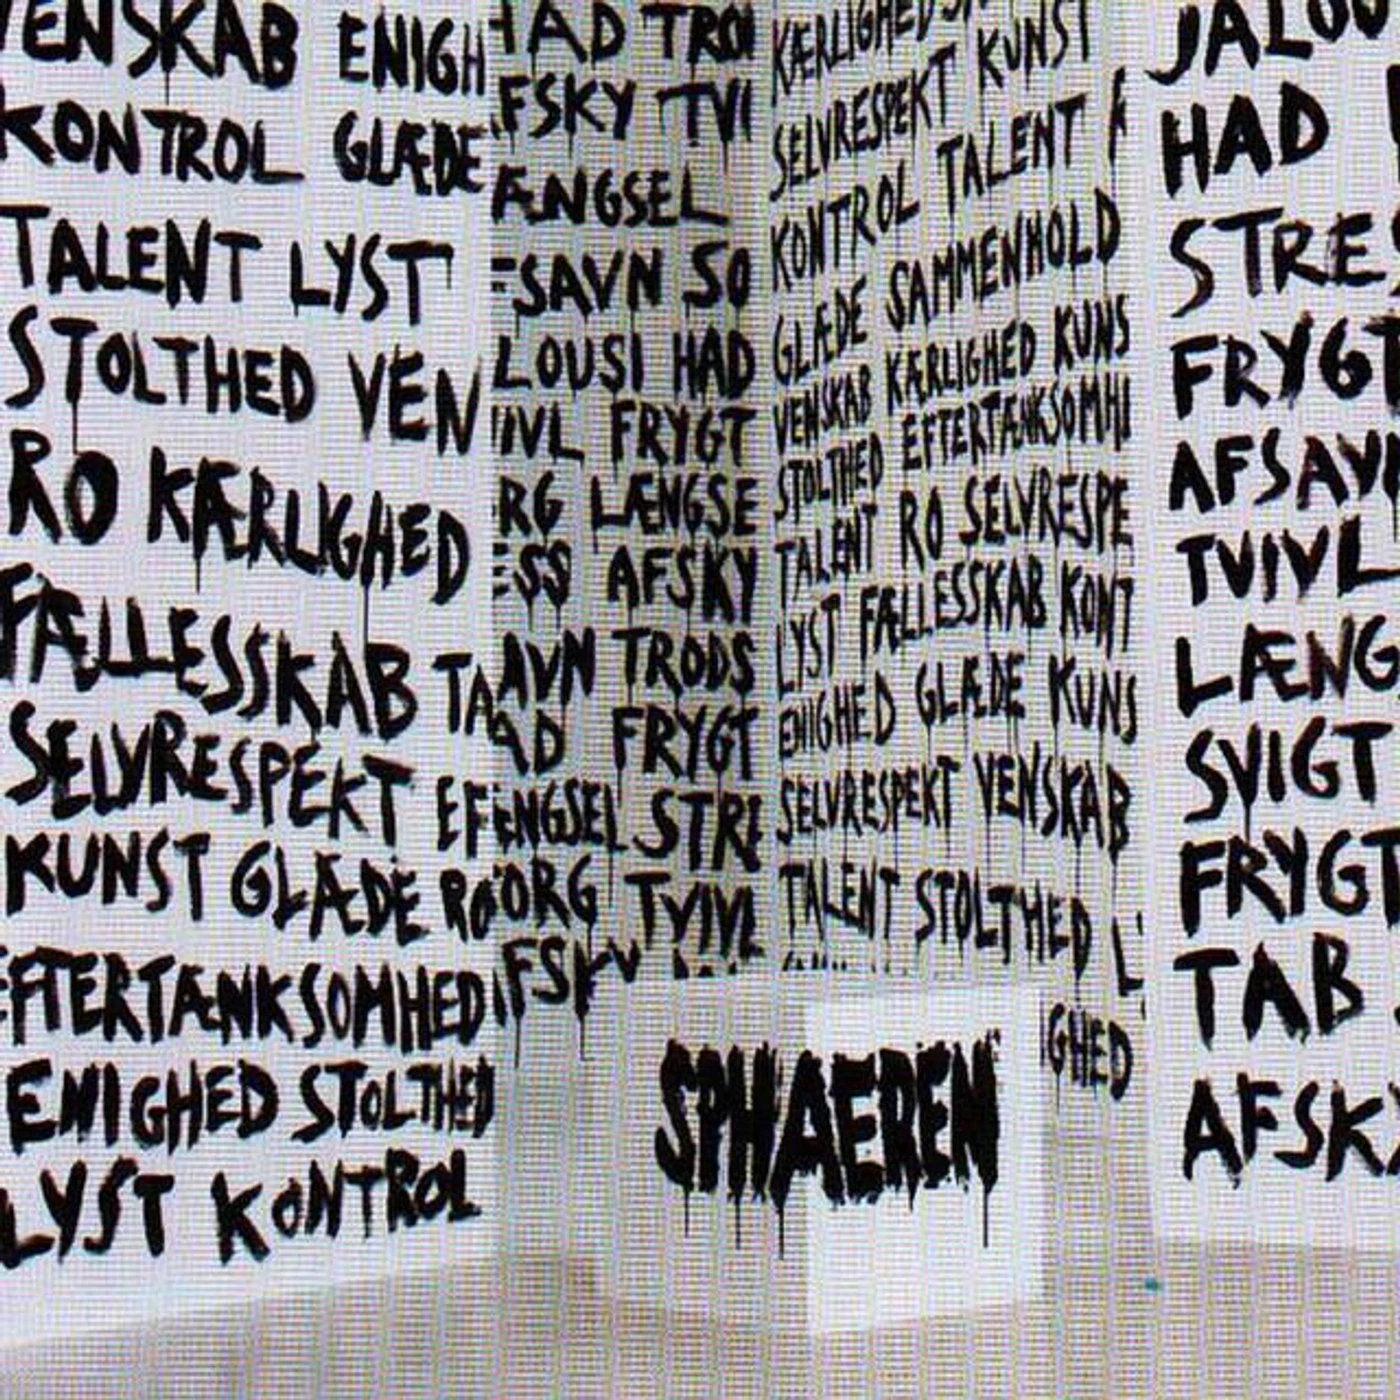 VENSKAB ENIGH
KONTROL GLÆDE
TALENT LYST
STOLTHED VEN
RO KÆRLIGHED
FÆLLESSKAB TA
SELVRESPEKT EF
KUNST GLÆDE RO
EFTERTÆNKSOMHED
ENIGHED STOLTHED
LYST KONTROL
HAD TRO
FSKY TVI
ÆNGSEL
ESAVN SO
LOUSI HAD
IVL FRYGT
RG LÆNGSE
ESS AFSKY
AVN TRODS
AD FRYGT
ENGSEL STRE
ORG TVIVL
FSKY
KÆRLIGHED
SELVRESPEKT KUNST
KONTROL TALENT
GLÆDE SAMMENHOLD
VENSKAB KÆRLIGHED KUNS
STOLTHED EFTERTÆNKSOMH
TALENT RO SELVRESPE
LYST FÆLLESSKAB KONT
ENIGHED GLÆDE KUNS
SELVRESPEKT VENSKAB
TALENT STOLTHED L
IGHED
SPHAEREN
JALOU
HAD
STRE
FRYGT
AFSAV
TVIVL
LÆNG
SVIGT
FRYGT
TAB
AFSK